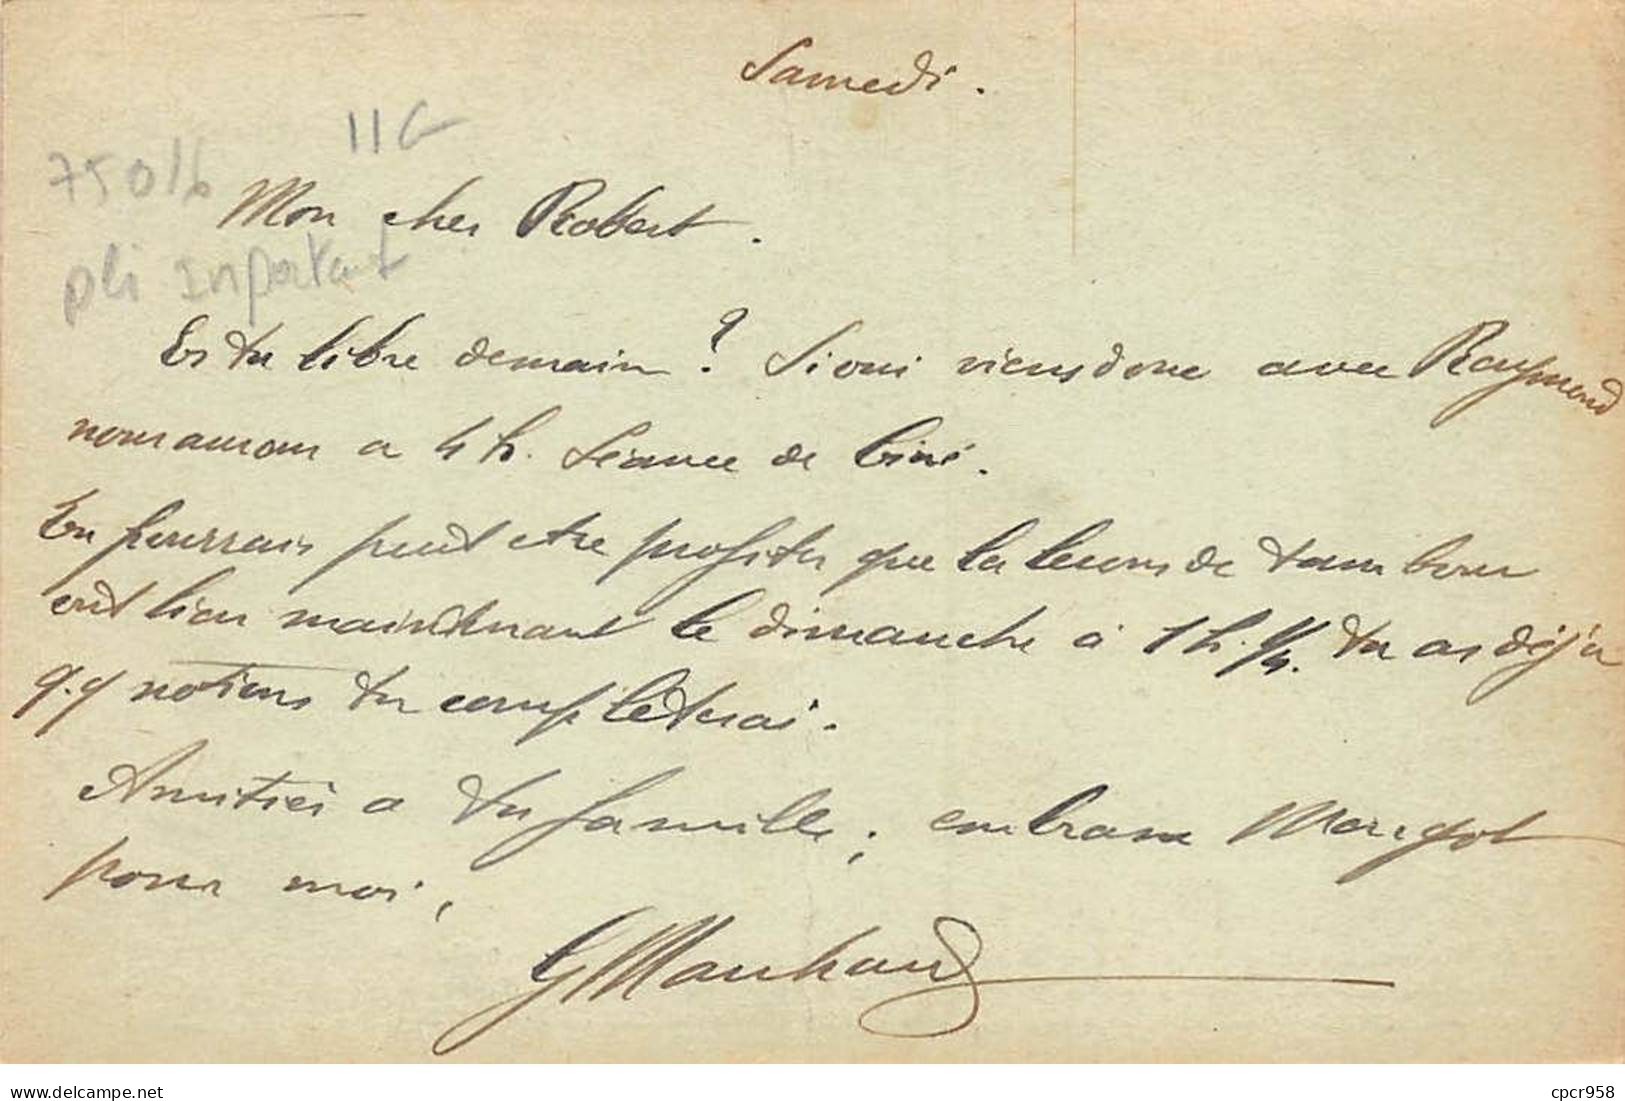 Samedi.
11G
75016
Mon cher Robert.
pli important
Es tu libre demain ? Si oui viens donc avec Raymond
nous aurons a 4 h. Séance de Ciné.
Tu pourrais peut etre profiter que la lecons de tambour
ont lieu maintenant le dimanche à 1 h. 1/4. tu as déjà
q.q notions tu completerai.
Amitiés a ta famille ; embrasse Margot
pour moi,
G Marchand
www.delcampe.net
cpcr958